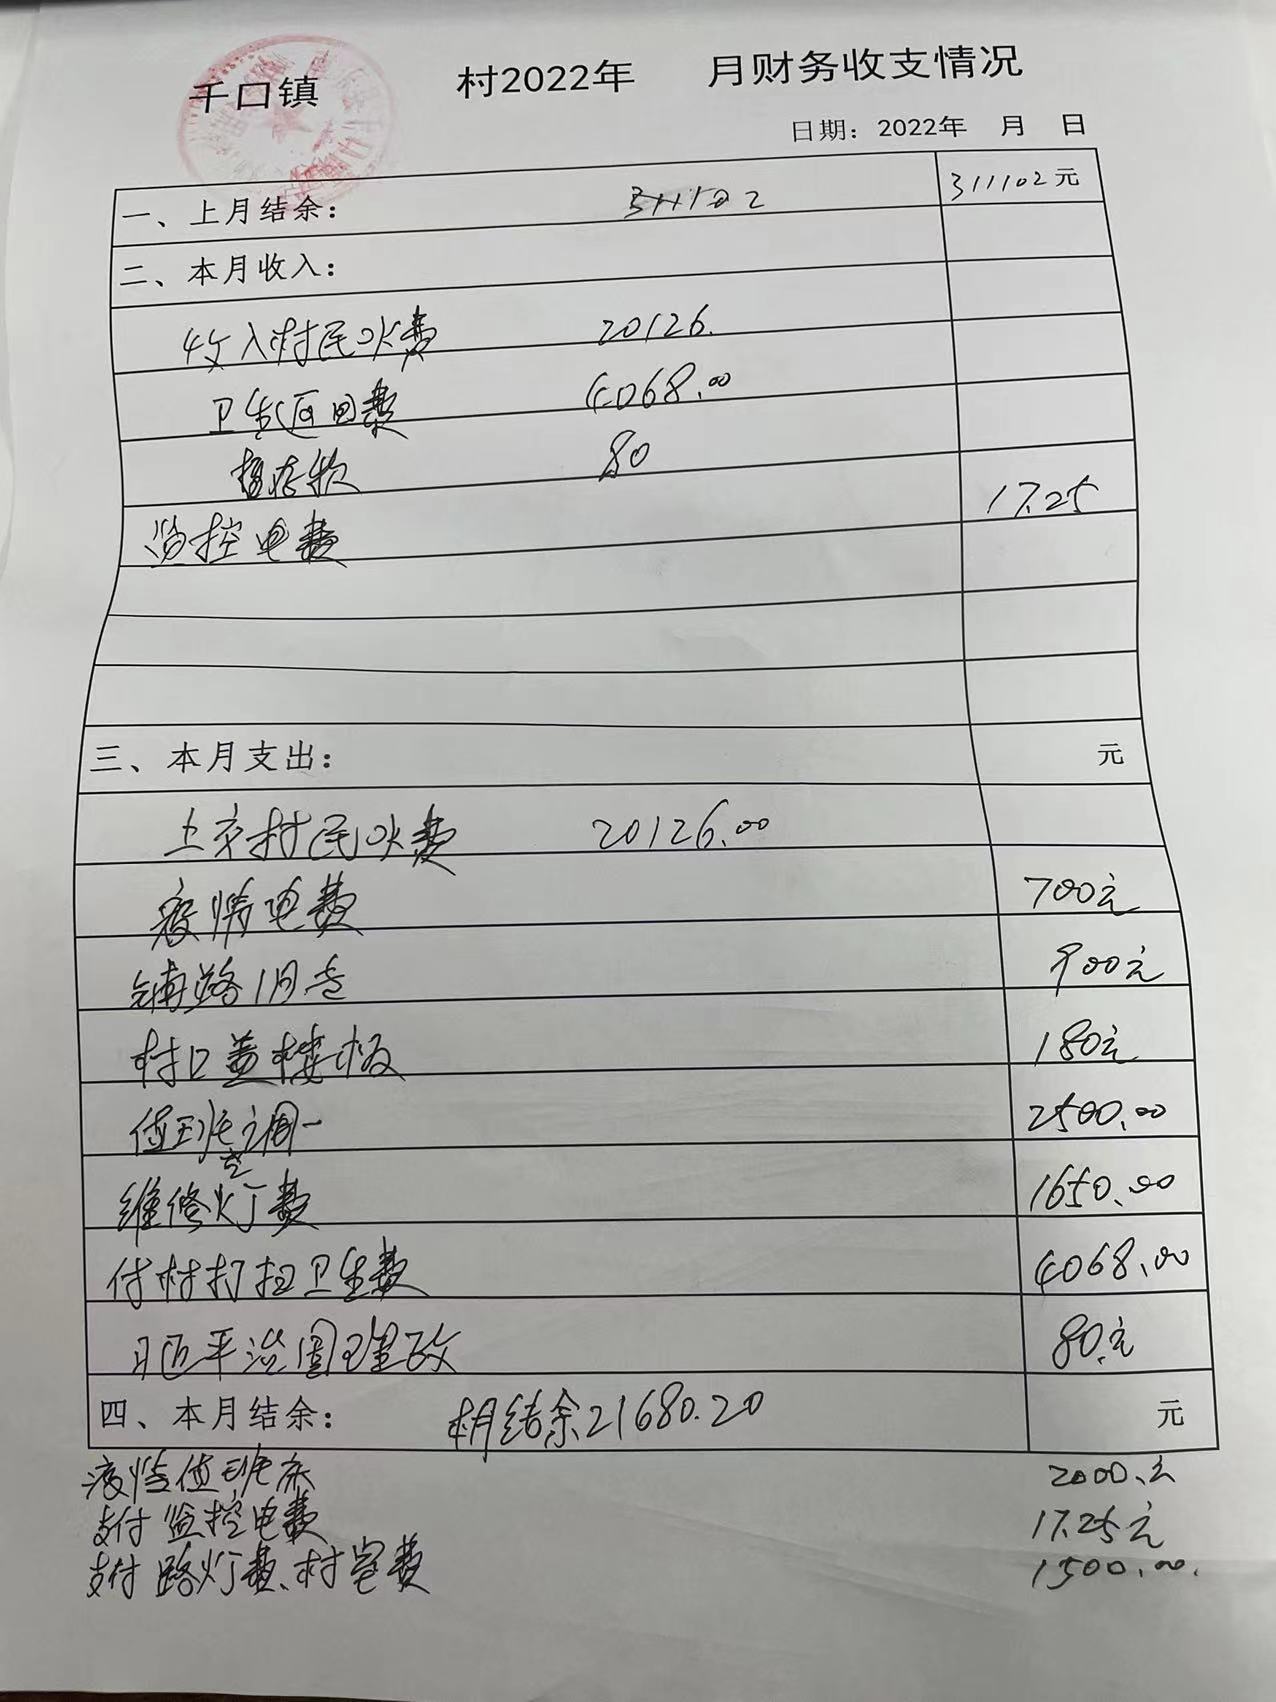 千口镇 村2022年 月财务收支情况
日期：2022年 月 日
一、上月结余： 311102元
二、本月收入：
收入村民水费 20126.
卫生返回费 4068.00
暂存款 80
监控电费 17.25
三、本月支出： 元
上交村民水费 20126.00
疫情电费 700元
铺路 900元
村口盖楼板 180元
值班 2500.00
维修灯费 1650.00
付村打扫卫生费 4068.00
习近平治国理政 80.元
四、本月结余： 本月结余21680.20 元
疫情值班床 2000.元
支付监控电费 17.25元
支付路灯费、村室费 1500.00.